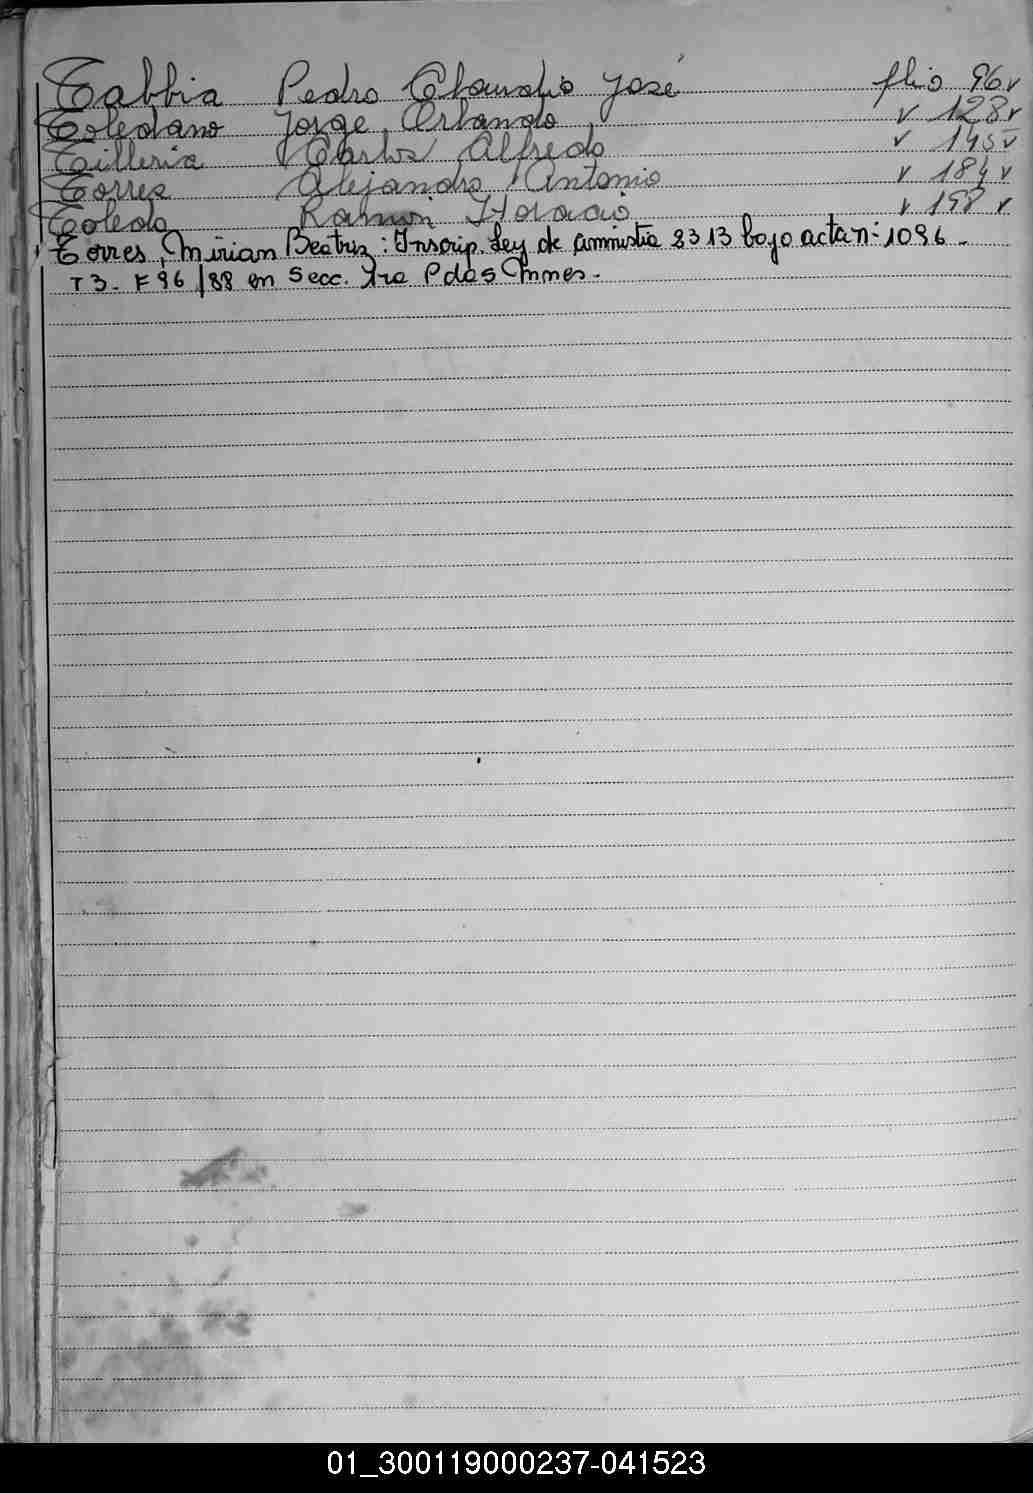 Tabbia Pedro Claudio José flio 96v
Toledano Jorge Orlando v 128v
Tilleria Carlos Alfredo v 145v
Torres Alejandro Antonio v 184v
Toledo Ramon Horacio v 198v
Torres, Mirian Beatriz: Inscrip. Ley de amnistia 2313 bajo acta nº 1096.
T3. F96/88 en Secc. 1ra Pdas Mmes.
01_300119000237-041523